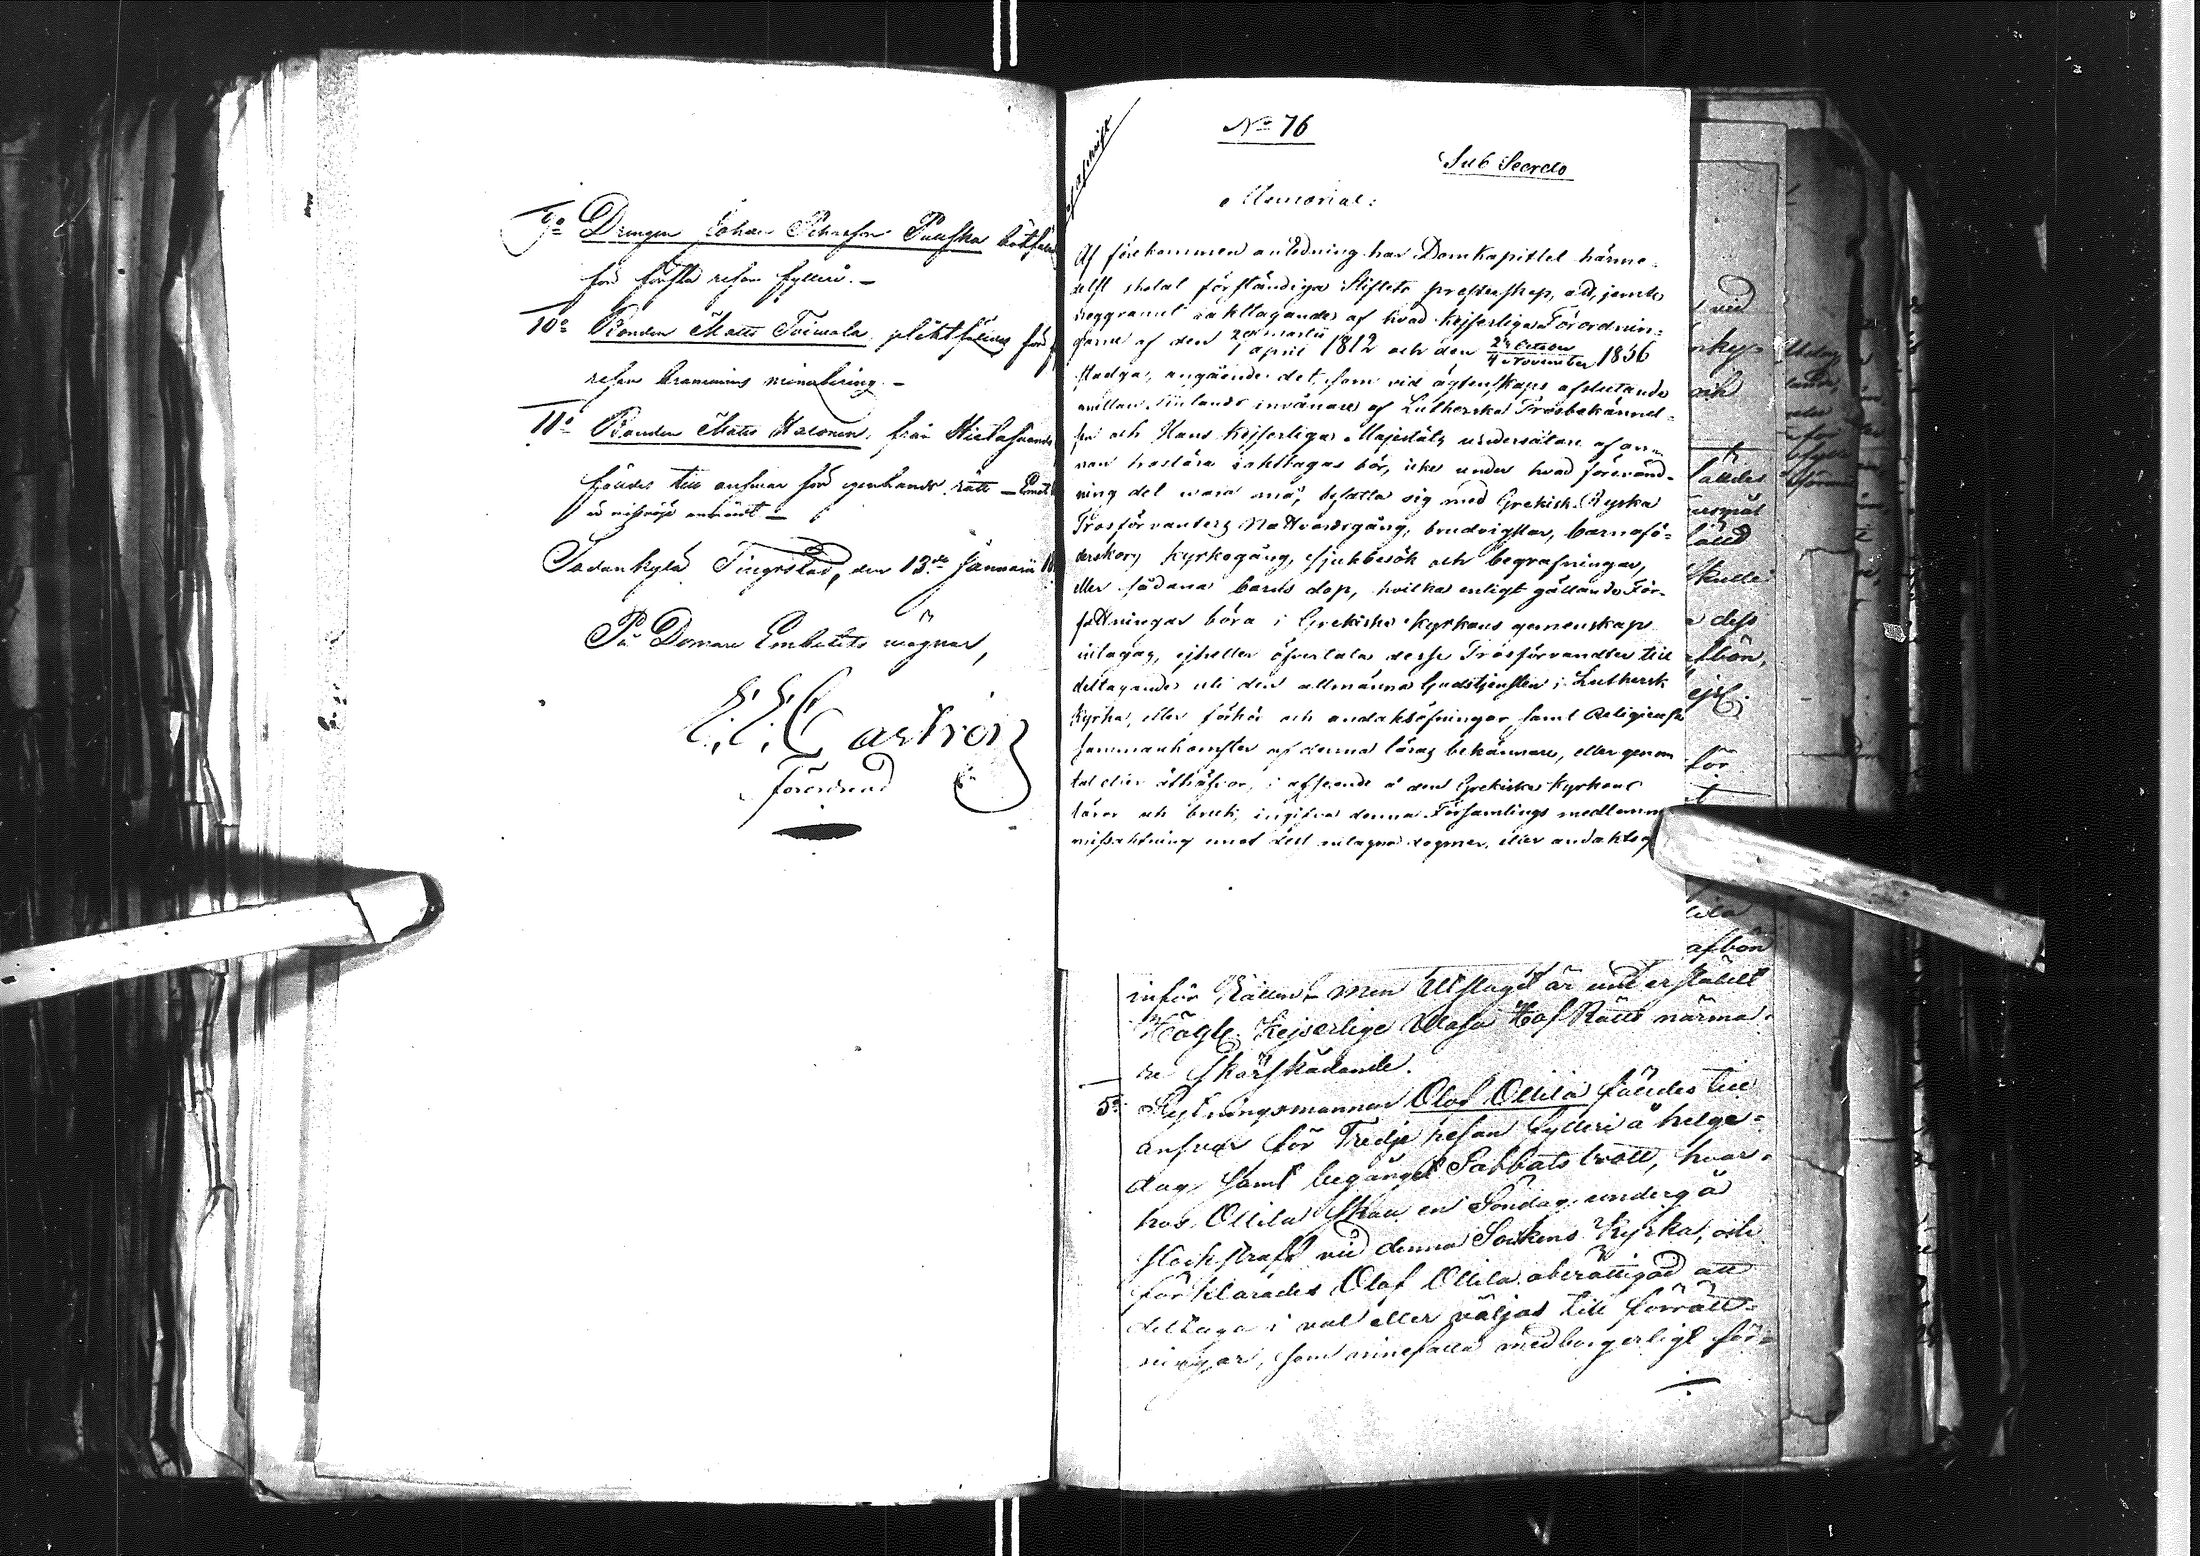 9o Drengen Johan Puuska bötfäldes
för första resan fylleri. –
10o Bonden Matts Toimela, pliktfäldes för
resan brannvins minutering –
11o Bonden Matts Halonen, från Hietasuando
fäldes till ansvar för egenhands rätt –
är missnöje anmäldt –
Sodankylä Tingsstad, den 13de Januarii
På Domare Embetets wägnar,
E. E. Castrén
förordnad
Afskrift
No 76
Sub Secreto
Memorial:
Af förekommen anledning har Domkapitlet härme-
delst skolat förständiga Stiftets presterskap, att, jemte
noggrannt iakttagande af hvad Kejserliga Förordnin-
garne af den 20 martii / 1 april 1812 och den 23 October / 4 November 1836
stadga, angående det, som vid ägtenskaps afslutande
mellan Finlands invånare af Lutherska Trosbekännel-
sen och Hans Kejserliga Majestäts undersåtare af an-
nan troslära iakttagas bör, icke under hvad förevänd-
ning det vara må, befatta sig med Grekisk-Ryska
Trosförvanters Nattvardsgång, brudvigslar, barnafö-
derskors kyrkogång, sjukbesök och begrafningar,
eller sådana barns dop, hvilka enligt gällande För-
fattningar böra i Grekiska Kyrkans gemenskap
intagas, ejheller öfvertala desse Trosförvandter till
deltagande uti den allmänna Gudstjensten i Luthersk
Kyrka, eller förhör och andaktsöfningar samt Religieusa
sammankomster af denna läras bekännare, eller genom
tal eller åthäfvor, i afseende å den Grekiska Kyrkans
läror och bruk, ingifva denna Församlings medlemmar
missaktning emot dess antagna dogmer, eller andakts
inför Rätten – men Utslaget är underställdt
Högl. Kejserlige Wasa Hof Rätts närma-
re skärskådande.
5o Skytningsmannen Olof Ollila fäldes till
ansvar för Tredje resan fylleri å helge-
dag samt begånget Sabbats brott, hvar-
hos Ollila skall en Söndag undergå
stockstraff vid denna Sockens Kyrka, och
förklarades Olof Ollila oberättigad att
deltaga i val eller väljas till förrätt-
ningar, som innefatta medborgerligt för-